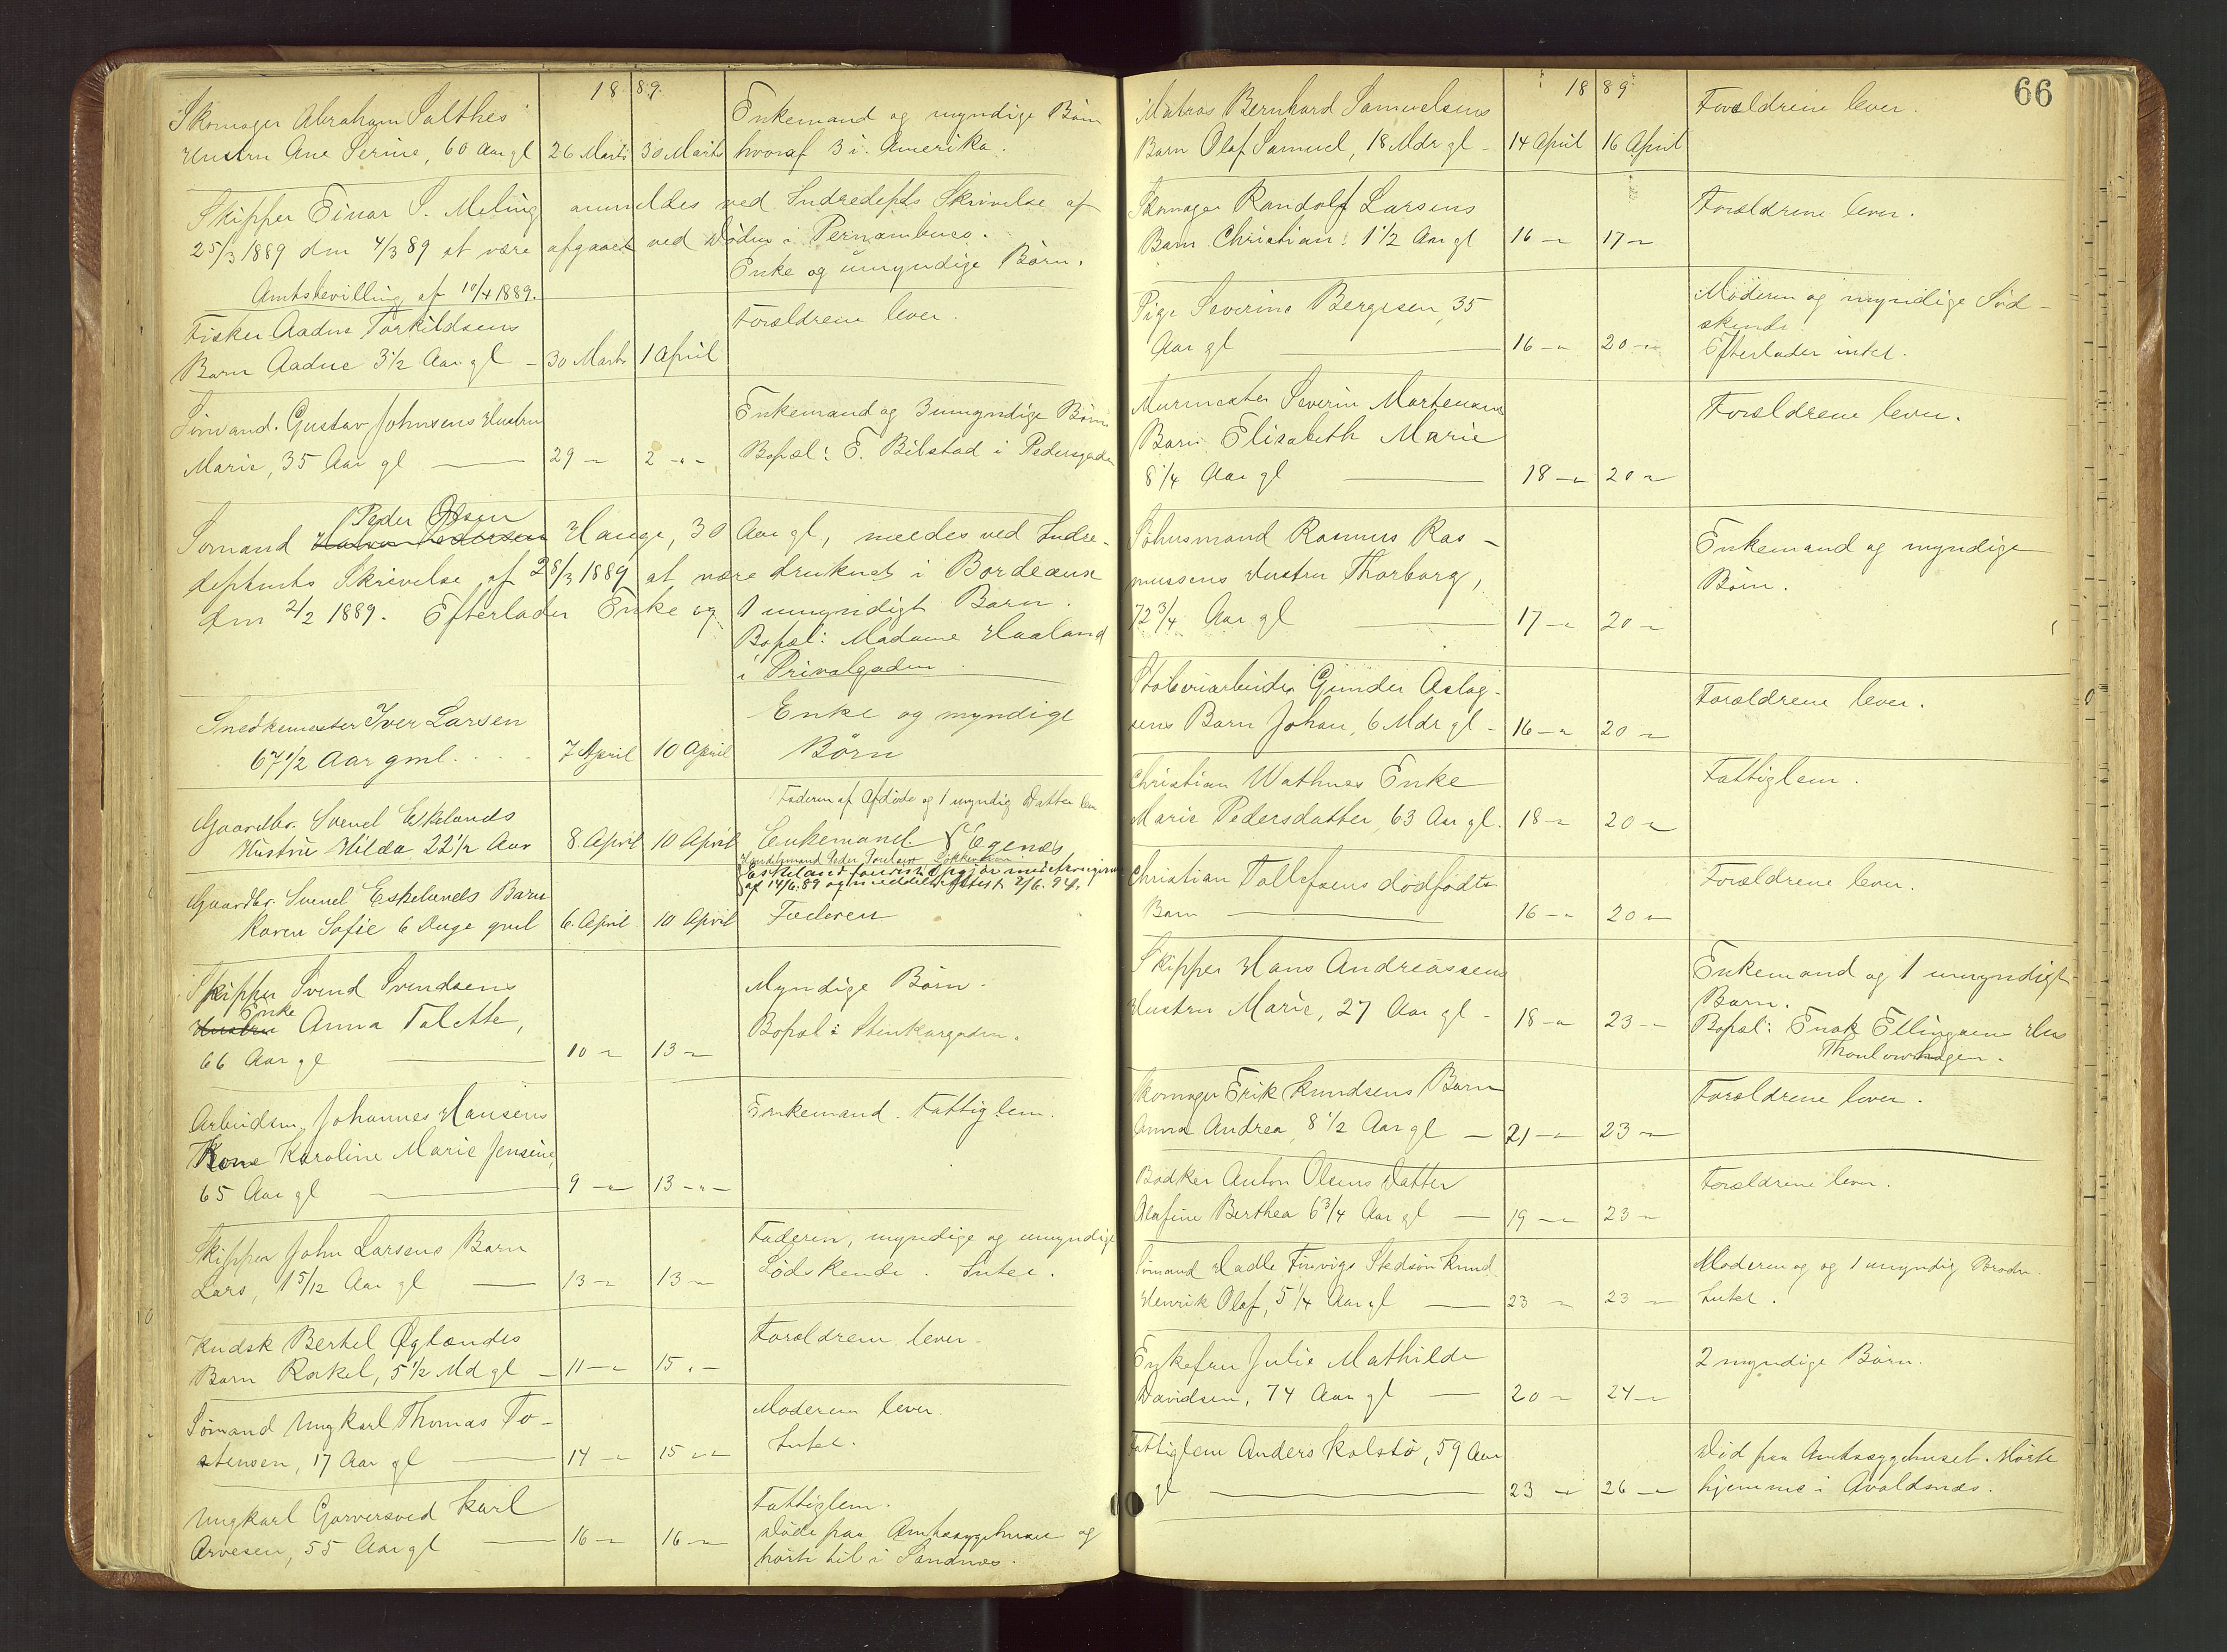 18 89.
Skomager Abraham Salthes
Hustru Ane Serine, 60 Aar gl 26 Marts 30 Marts
Enkemand og myndige Børn
hvoraf 3 i Amerika.
Skipper Einar S. Meling anmeldes ved Indredepts Skrivelse af
25/3 1889 den 4/3 89 at være afgaaet ved Døden i Pernambuco.
Enke og umyndige Børn.
Amtsbevilling af 10/4 1889.
Fisker Aadne Torkildsens
Barn Aadne 3 1/2 Aar gl - 30 Marts 1 April
Forældrene lever.
Sømand Gustav Johnsens Hustru
Marie, 35 Aar gl 29 - 2 -"-
Enkemand og 3 umyndige Børn
Bopæl: E. Bilstad i Pedersgaden
Peder Olsen
Sømand Hauge, 30 Aar gl, meldes ved Indre-
deptmts Skrivelse af 28/3 1889 at være druknet i Bordeaux
den 2/2 1889. Efterlader Enke og 1 umyndigt Barn.
Bopæl: Madame Haaland
i Privatgaden
Snedkemester Iver Larsen
67 1/2 Aar gml. 7 April 10 April
Enke og myndige
Børn
Faderen af Afdøde og 1 myndig Datter lever
Gaardbr. Svend Eskelands
Hustru Hilda 22 1/2 Aar 8. April 10 April
Enkemand Egenæs
af 14/6. 89 og
Gaardbr. Svend Eskelands Barn
Karen Sofie 6 Uge gml 6. April 10 April
Faderen
Skipper Svend Svendsens
Enke
Hustru Anna Talette,
66 Aar gl 10 - 13 -
Myndige Børn.
Bopæl i Stenkargaden.
Arbeidsm. Johannes Hansens
Kone Karoline Marie Jensine,
65 Aar gl 9 - 13 -"-
Enkemand. Fattiglem.
Skipper John Larsens Barn
Lars, 1 5/12 Aar gl 13 - 13 -
Faderen, myndige og umyndige
Sødskende. Intet.
Kudsk Bertel Øglændes
Barn Rakel, 5 1/2 Md gl - 11 - 15 -
Forældrene lever.
Sømand Ungkarl Thomas To-
stensen, 17 Aar gl 14 - 15 -
Moderen lever.
Intet.
Ungkarl Garversvend Karl
Arvesen, 55 Aar gl 16 - 16 -
Fattiglem.
Døde paa Amtssygehuset og
hørte til i Sandnæs.
66
18 89
Matros Bernhard Samuelsens
Barn Olaf Samuel, 18 Mdr gl - 14 April 16 April
Forældrene lever.
Skomager Randolf Larsens
Barn Christian 1 1/2 Aar gl 16 - 17 -
Forældrene lever.
Pige Severine Bergesen, 35
Aar gl 16 - 20 -
Moderen og myndige Sød-
skende.
Efterlader intet.
Murmester Severin Mortensens
Barn Elisabeth Marie
8 1/4 Aar gl 18 - 20 -
Forældrene lever.
Søhusmand Rasmus Ras-
mussens Hustru Thorborg,
72 3/4 Aar gl 17 - 20 -
Enkemand og myndige
Børn.
Støberiarbeider Gunder Aslag-
sens Barn Johan, 6 Mdr gl - 16 - 20 -
Forældrene lever.
Christian Wathnes Enke
Marie Pedersdatter, 63 Aar gl. 18 - 20 -
Fattiglem.
Christian Tollefsens dødfødte
Barn 16 - 20 -
Forældrene lever.
Skipper Hans Andreassens
Hustru Marie, 27 Aar gl - 18 - 23 -
Enkemand og 1 umyndigt
Barn.
Bopæl: Enok Ellingsens Hus
Thoulowhagen.
Skomager Erik Knudsens Barn
Anna Andrea, 8 1/2 Aar gl - 21 - 23 -
Forældrene lever.
Bødker Anton Olsens Datter
Olefine Berthea 6 3/4 Aar gl - 19 - 23 -
Forældrene lever.
Sømand Hadle Finvigs Stedsøn Knud
Henrik Olaf, 5 1/4 Aar gl 23 - 23 -
Moderen og og 1 umyndig Broder.
Intet.
Enkefru Julie Mathilde
Davidsen, 74 Aar gl 20 - 24 -
2 myndige Børn.
Fattiglem Anders Kolstø, 59 Aar
gl 23 - 26 -
Død paa Amtssygehuset. Hørte
hjemme i Avaldsnæs.